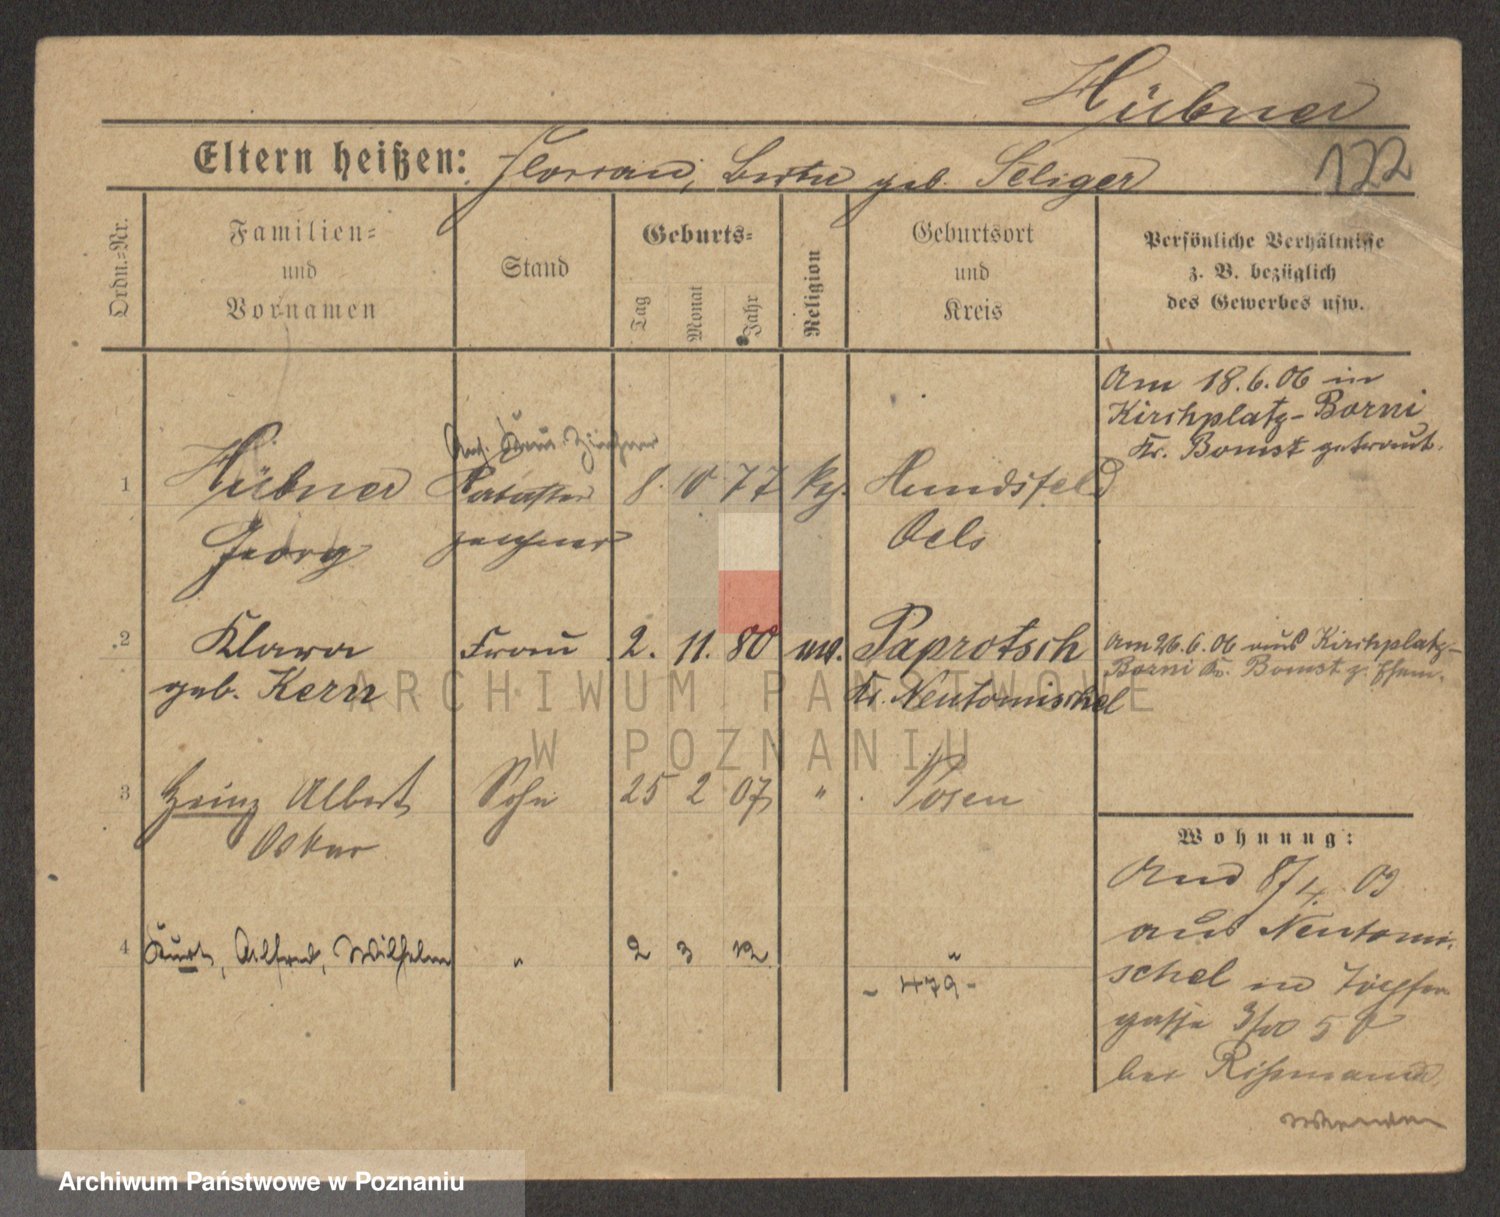 Hübner
Eltern heißen: Florian, Berta geb. Seliger
122
Ordn.-Nr.
Familien-
und
Vornamen
Stand
Geburts-
Tag
Monat
Jahr
Religion
Geburtsort
und
Kreis
Persönliche Verhältnisse
z. B. bezüglich
des Gewerbes usw.
Am 18.6.06 in
Kirchplatz-Borni
Kr. Bomst getraut.
1 Hübner Kataster 8. 10 77 Hundsfeld
Georg zeichner Oels
2 Klara Frau 2. 11. 80 Paprotsch
geb. Kern Kr. Neutomischel
am 26.6.06 aus Kirchplatz-
Borni Kr. Bomst z. Ehem.
3 Heinz Albert Sohn 25 2 07 " Posen
Oskar
Wohnung:
4 Kurt, Alfred, Wilhelm " 2 3 12 "
- 479 -
8/4 09
aus Neutomi-
schel in
gasse 3/00 5
bei Rißmann
ARCHIWUM PAŃSTWOWE
W POZNANIU
Archiwum Państwowe w Poznaniu